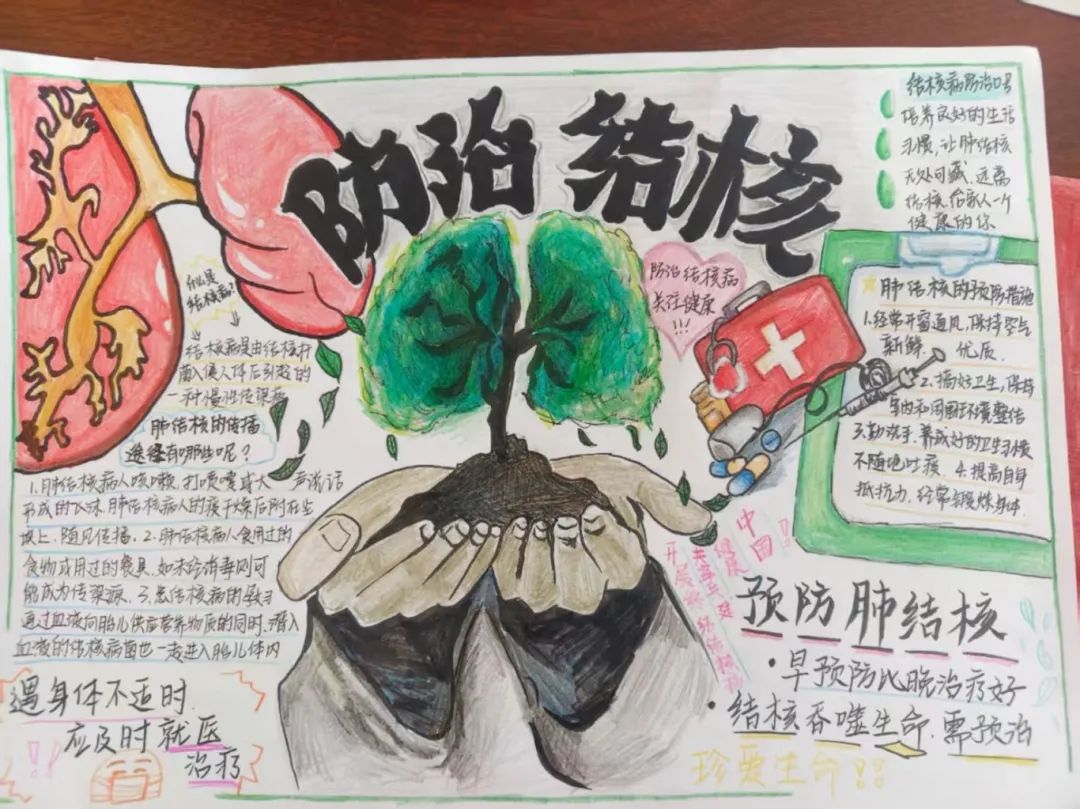 防治结核
结核病防治口号
培养良好的生活
习惯,让肺结核
无处可藏.远离
结核,给家人一个
健康的你
什么是
结核病?
结核病是由结核杆
菌入侵人体后引起的
一种慢性传染病
肺结核的传播
途径有哪些呢?
1.肺结核病人咳嗽.打喷嚏或大声说话
形成的飞沫.肺结核病人的痰干燥后附在尘
埃上.随风传播.2.肺结核病人食用过的
食物或用过的餐具.如未经消毒则可
能成为传染源.3.患结核病的母亲
通过血液向胎儿供应营养物质的同时.潜入
血液的结核病菌也一起进入胎儿体内
遇身体不适时.
应及时就医
治疗
防治结核病
关注健康
!!!
肺结核的预防措施
1.经常开窗通风.保持空气
新鲜、优质.
2.搞好卫生,保持
室内和周围环境整洁
3.勤洗手.养成好的卫生习惯
不随地吐痰.4.提高自身
抵抗力.经常锻炼身体.
中国!
健康
开展终结结核病
预防肺结核
·早预防比晚治疗好
·结核吞噬生命.需预治
珍爱生命!!